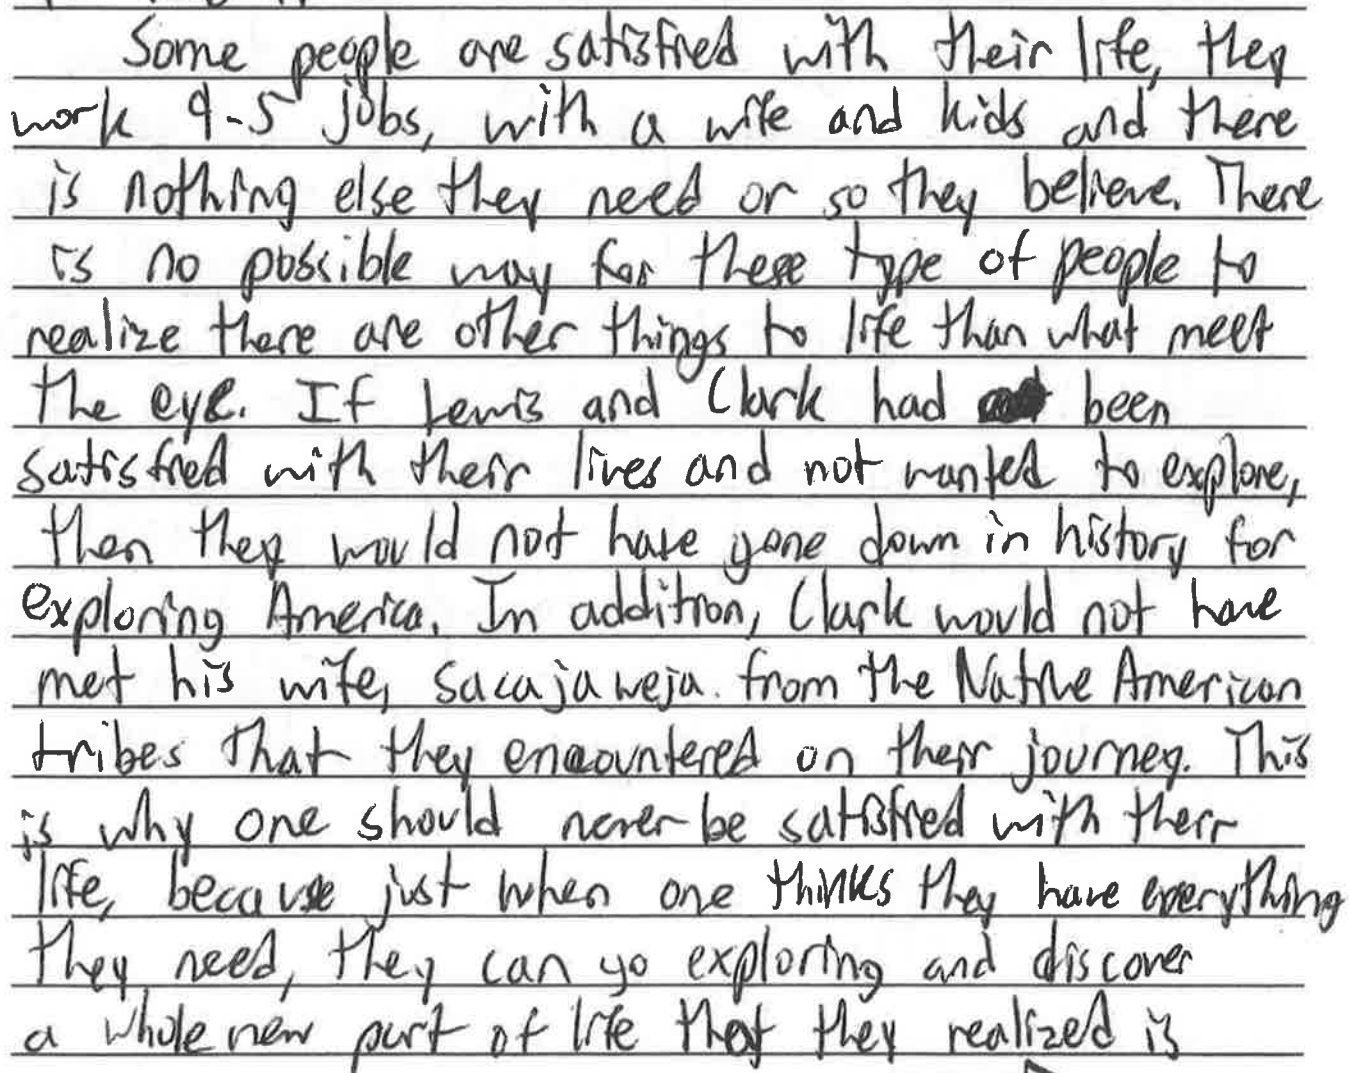 Some people are satisfied with their life, they
work 9-5 jobs, with a wife and kids and there
is nothing else they need or so they believe. There
is no possible way for these type of people to
realize there are other things to life than what meet
the eye. If Lewis and Clark had been
satisfied with their lives and not wanted to explore,
then they would not have gone down in history for
exploring America. In addition, Clark would not have
met his wife, Sacajaweja. from the Native American
tribes that they encountered on their journey. This
is why one should never be satisfied with their
life, because just when one thinks they have everything
they need, they can go exploring and discover
a whole new part of life that they realized is